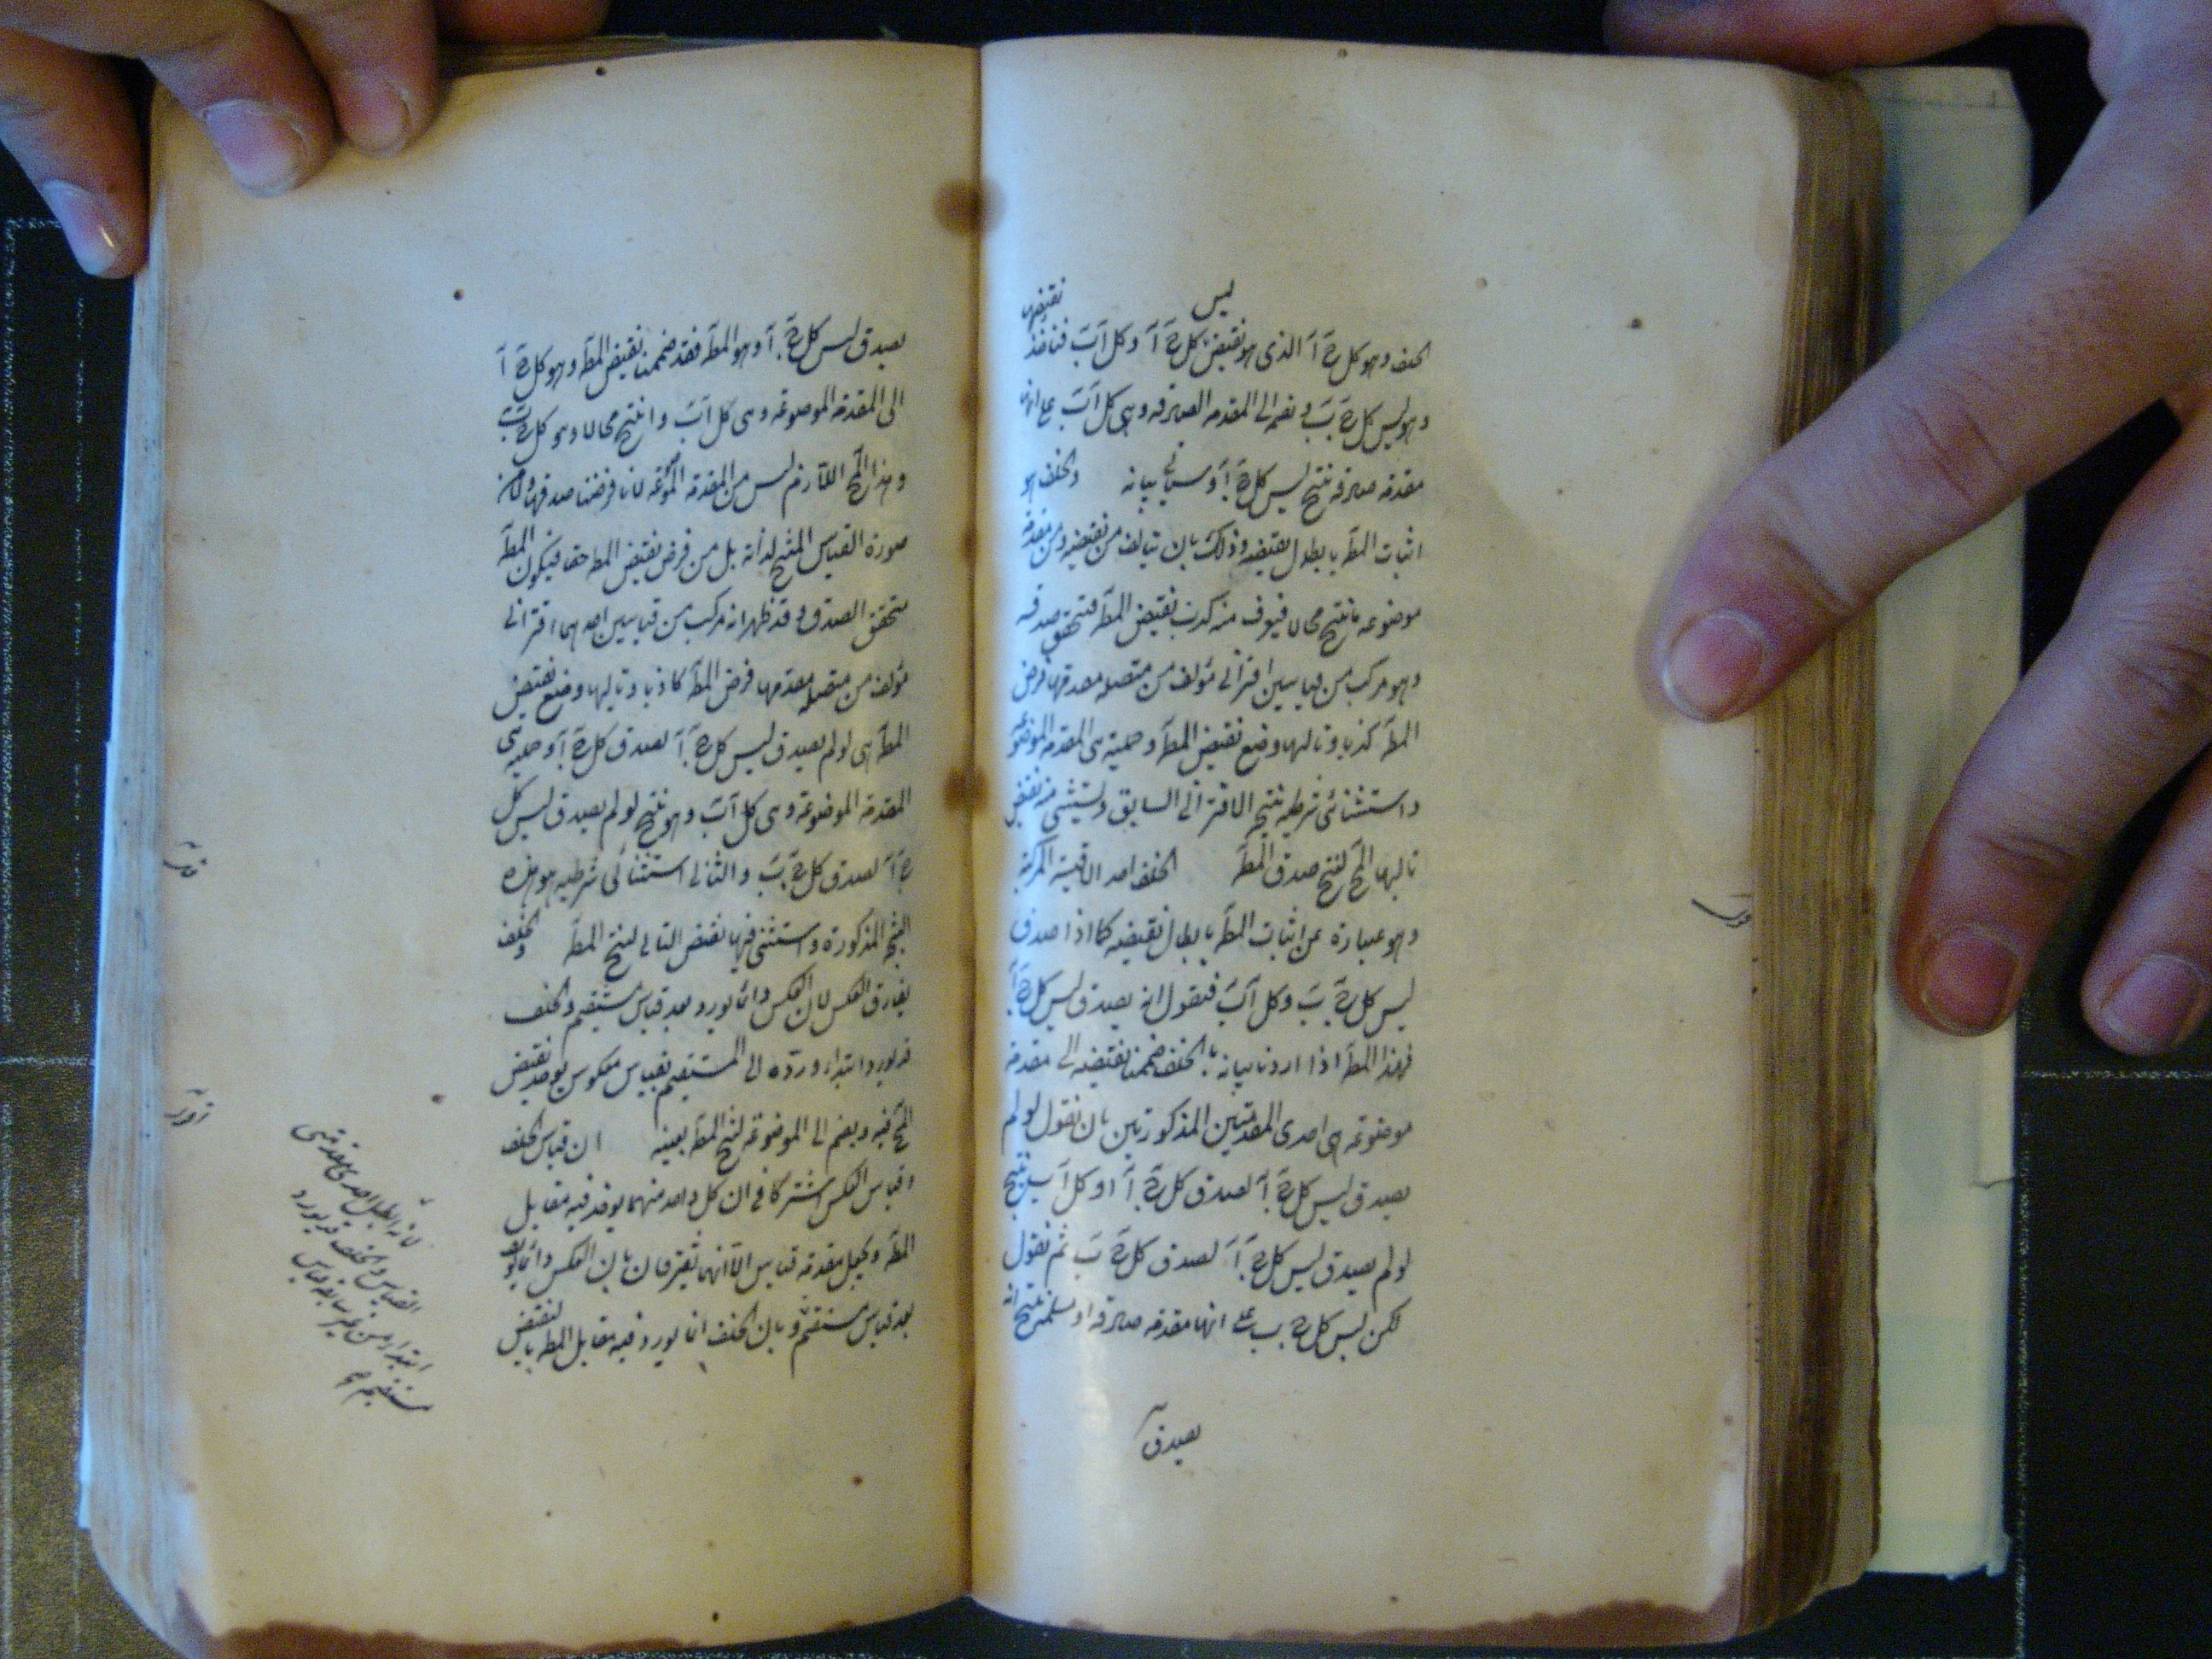 ليس
نقيضها
الخلف وهو كل ج آ الذى هو نقيض كل ج آ وكل آ ب فنأخذ
وهو ليس كل ج ب ونضمه الى المقدمه الصادقه وهى كل آ ب على انها
مقدمه صادقه ينتج ليس كل ج آ وسيأتى بيانه والخلف هو
اثبات المط بابطال نقيضه وذلك بان يتألف من نقيضه ومن مقدمة
موضوعه ما ينتج محالا فيعرف منه كذب نقيض المط فتحقق صدقه
وهو مركب من قياسين اقترانى مؤلف من متصله مقدمها فرض
المط كذبا وتاليها وضع نقيض المط وحملية هى المقدمة الموضوعة
واستثنائى شرطيه نتيجة الاقترانى السابق ويستثنى منه نقيض
تاليها المح لينتج صدق المط الخلف احد الاقيسة المركبة
وهو عبارة عن اثبات المط بابطال نقيضه كما اذا صدق
ليس كل ج ب وكل آ ب فنقول انه يصدق ليس كل ج آ
فهذا المط اذا اردنا بيانه بالخلف ضممنا نقيضه الى مقدمة
موضوعه هى احدى المقدمتين المذكورتين بان نقول لو لم
يصدق ليس كل ج آ لصدق كل ج آ وكل آ ب ينتج
لو لم يصدق ليس كل ج آ لصدق كل ج ب ثم نقول
لكن ليس كل ج ب على انها مقدمه صادقه او مسلمة ينتج انه
يصدق
يصدق ليس كل ج آ وهو المط فقد ضممنا نقيض المط وهو كل ج آ
الى المقدمة الموضوعه وهى كل آ ب وانتج محالا وهو كل ج ب
وهذا المح اللازم ليس من المقدمة الموضوعة لانا فرضنا صدقها ولا من
صورة القياس المنتج لذاته بل من فرض نقيض المط حقا فيكون المط
متحقق الصدق وقد ظهر انه مركب من قياسين احدهما اقترانى
مؤلف من متصله مقدمها فرض المط كاذبا وتاليها وضع نقيض
المط اى لو لم يصدق ليس كل ج آ لصدق كل ج آ وحمليه هى
المقدمة الموضوعة وهى كل آ ب وهو ينتج لو لم يصدق ليس كل
ج آ لصدق كل ج ب والثانى استثنائى شرطيه هو هذه
النتيجة المذكورة واستثنى فيها نقيض التالى لينتج المط والخلف
يفارق العكس لان العكس دائما يورد بعد قياس مستقيم والخلف
قد يورد ابتداء ورده الى المستقيم بقياس معكوس يوخذ نقيض
المح فيه ويضم الى الموضوعة لينتج المط بعينه ان قياس الخلف
وقياس العكس اشتركا فى ان كل واحد منهما يوخذ فيه مقابل
المط ويجعل مقدمة قياس الا انهما يفترقان بان العكس دائما يورد
بعد قياس مستقيم وبان الخلف انما يورد فيه مقابل المط بالنقيض
لانه ابطال احدى مقدمتى
القياس والخلف قد يورد
ابتداء من غير سابقة قياس
مستقيم